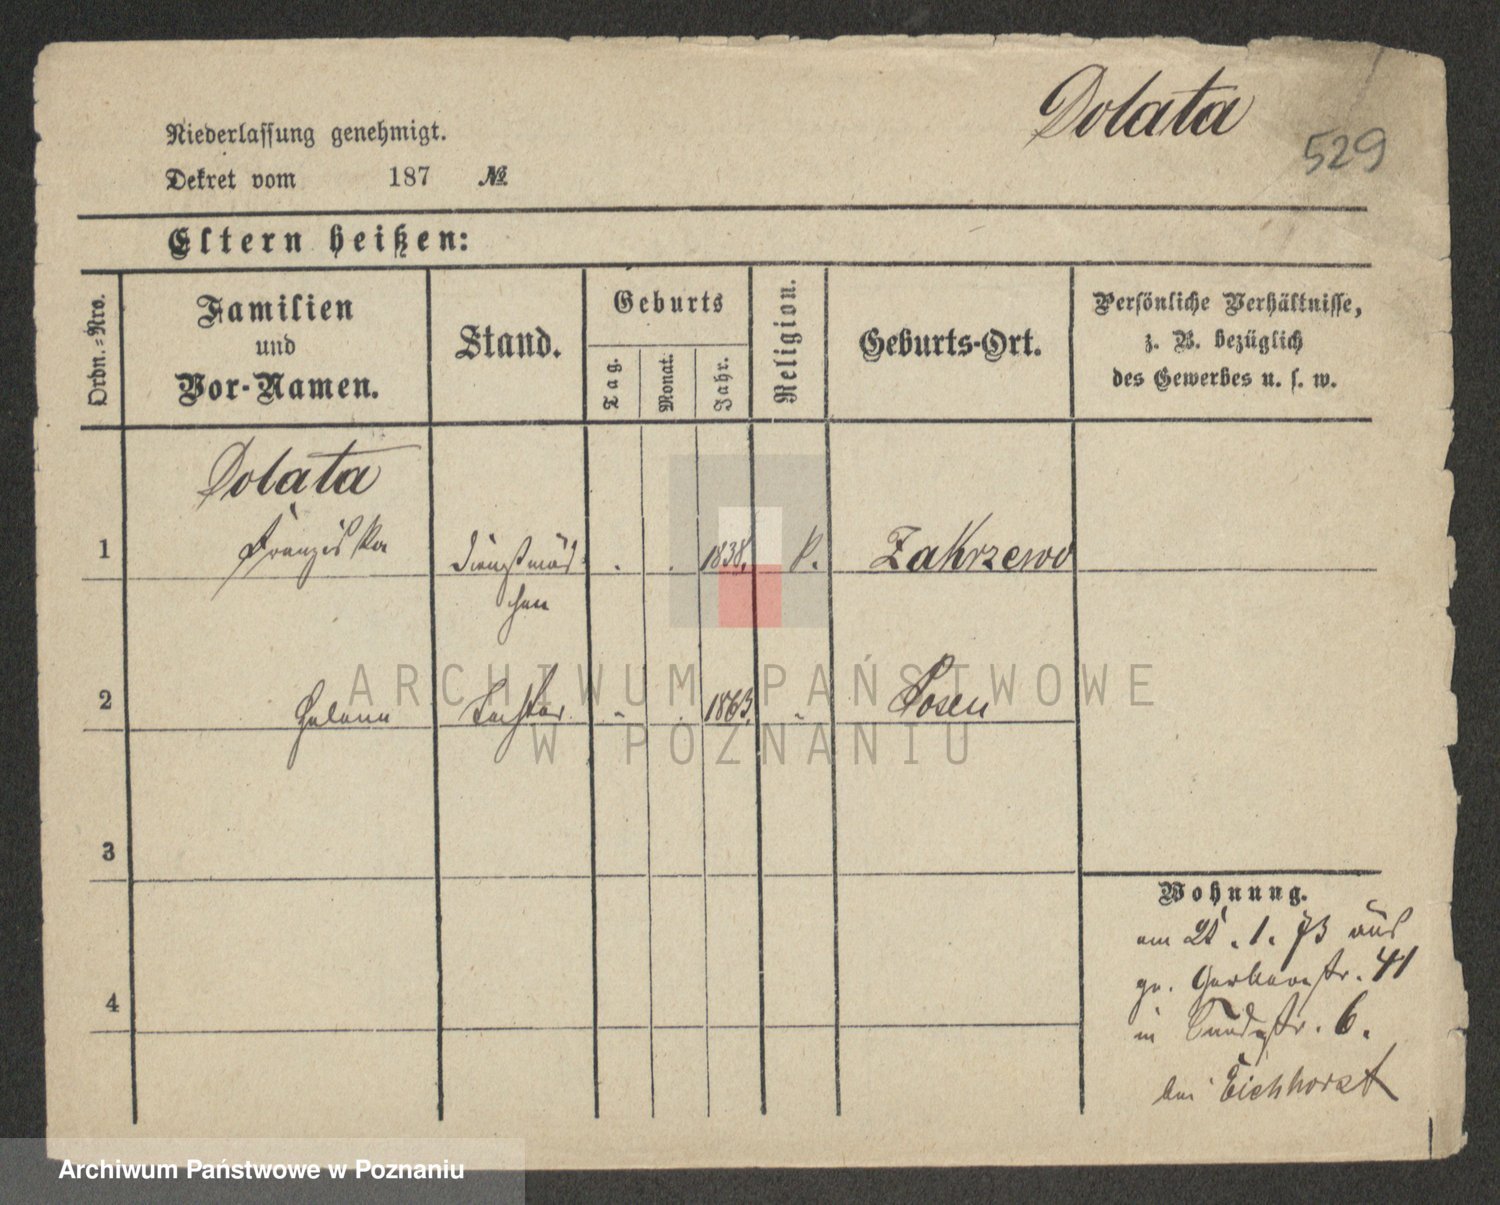 Dolata
529
Niederlassung genehmigt.
Dekret vom 187 №
Eltern heißen:
Ordn.-Nro.
Familien
und
Vor-Namen.
Stand.
Geburts
Tag.
Monat.
Jahr.
Religion.
Geburts-Ort.
Persönliche Verhältnisse,
z. B. bezüglich
des Gewerbes u. s. w.
Dolata
1 Franziska Dienstmäd- . . 1838. k. Zakrzewo
chen
2 Helena Tochter - . 1863. - Posen
3
4
Wohnung.
am . 1. 73 aus
gr. Gerberstr. 41
in Sandstr. 6.
bei Eichhorst
ARCHIWUM PAŃSTWOWE
W POZNANIU
Archiwum Państwowe w Poznaniu